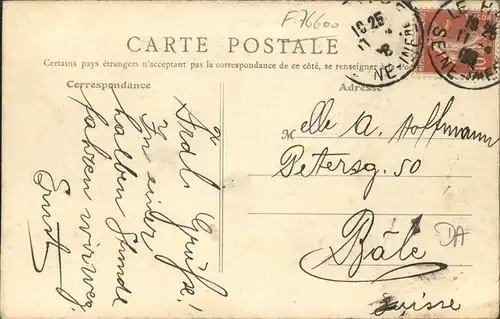 F.76600
CARTE POSTALE
Certains pays étrangers n'acceptant pas la correspondance de ce côté, se renseigner
Correspondance
Adresse
LE H
16 25
17
SEINE
16 25
17
NE
Grüsse!
In einer
halben Stunde
fahren wir weg.
Ernst
Melle A. Hoffmann
Petersg. 50
Bâle
Suisse
DA